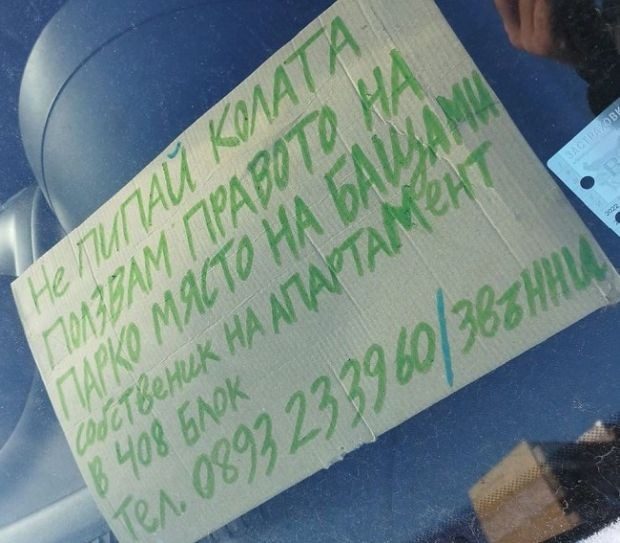 Не ПИПАЙ КОЛАТА
ПОЛЗВАМ ПРАВОТО НА
ПАРКО МЯСТО НА БАЩАМИ
собственик НА АПАРТАМЕНТ
В 408 БЛОК
Тел. 0893 233960/ЗВЪННИ
ЗАСТРАХОВК
2022